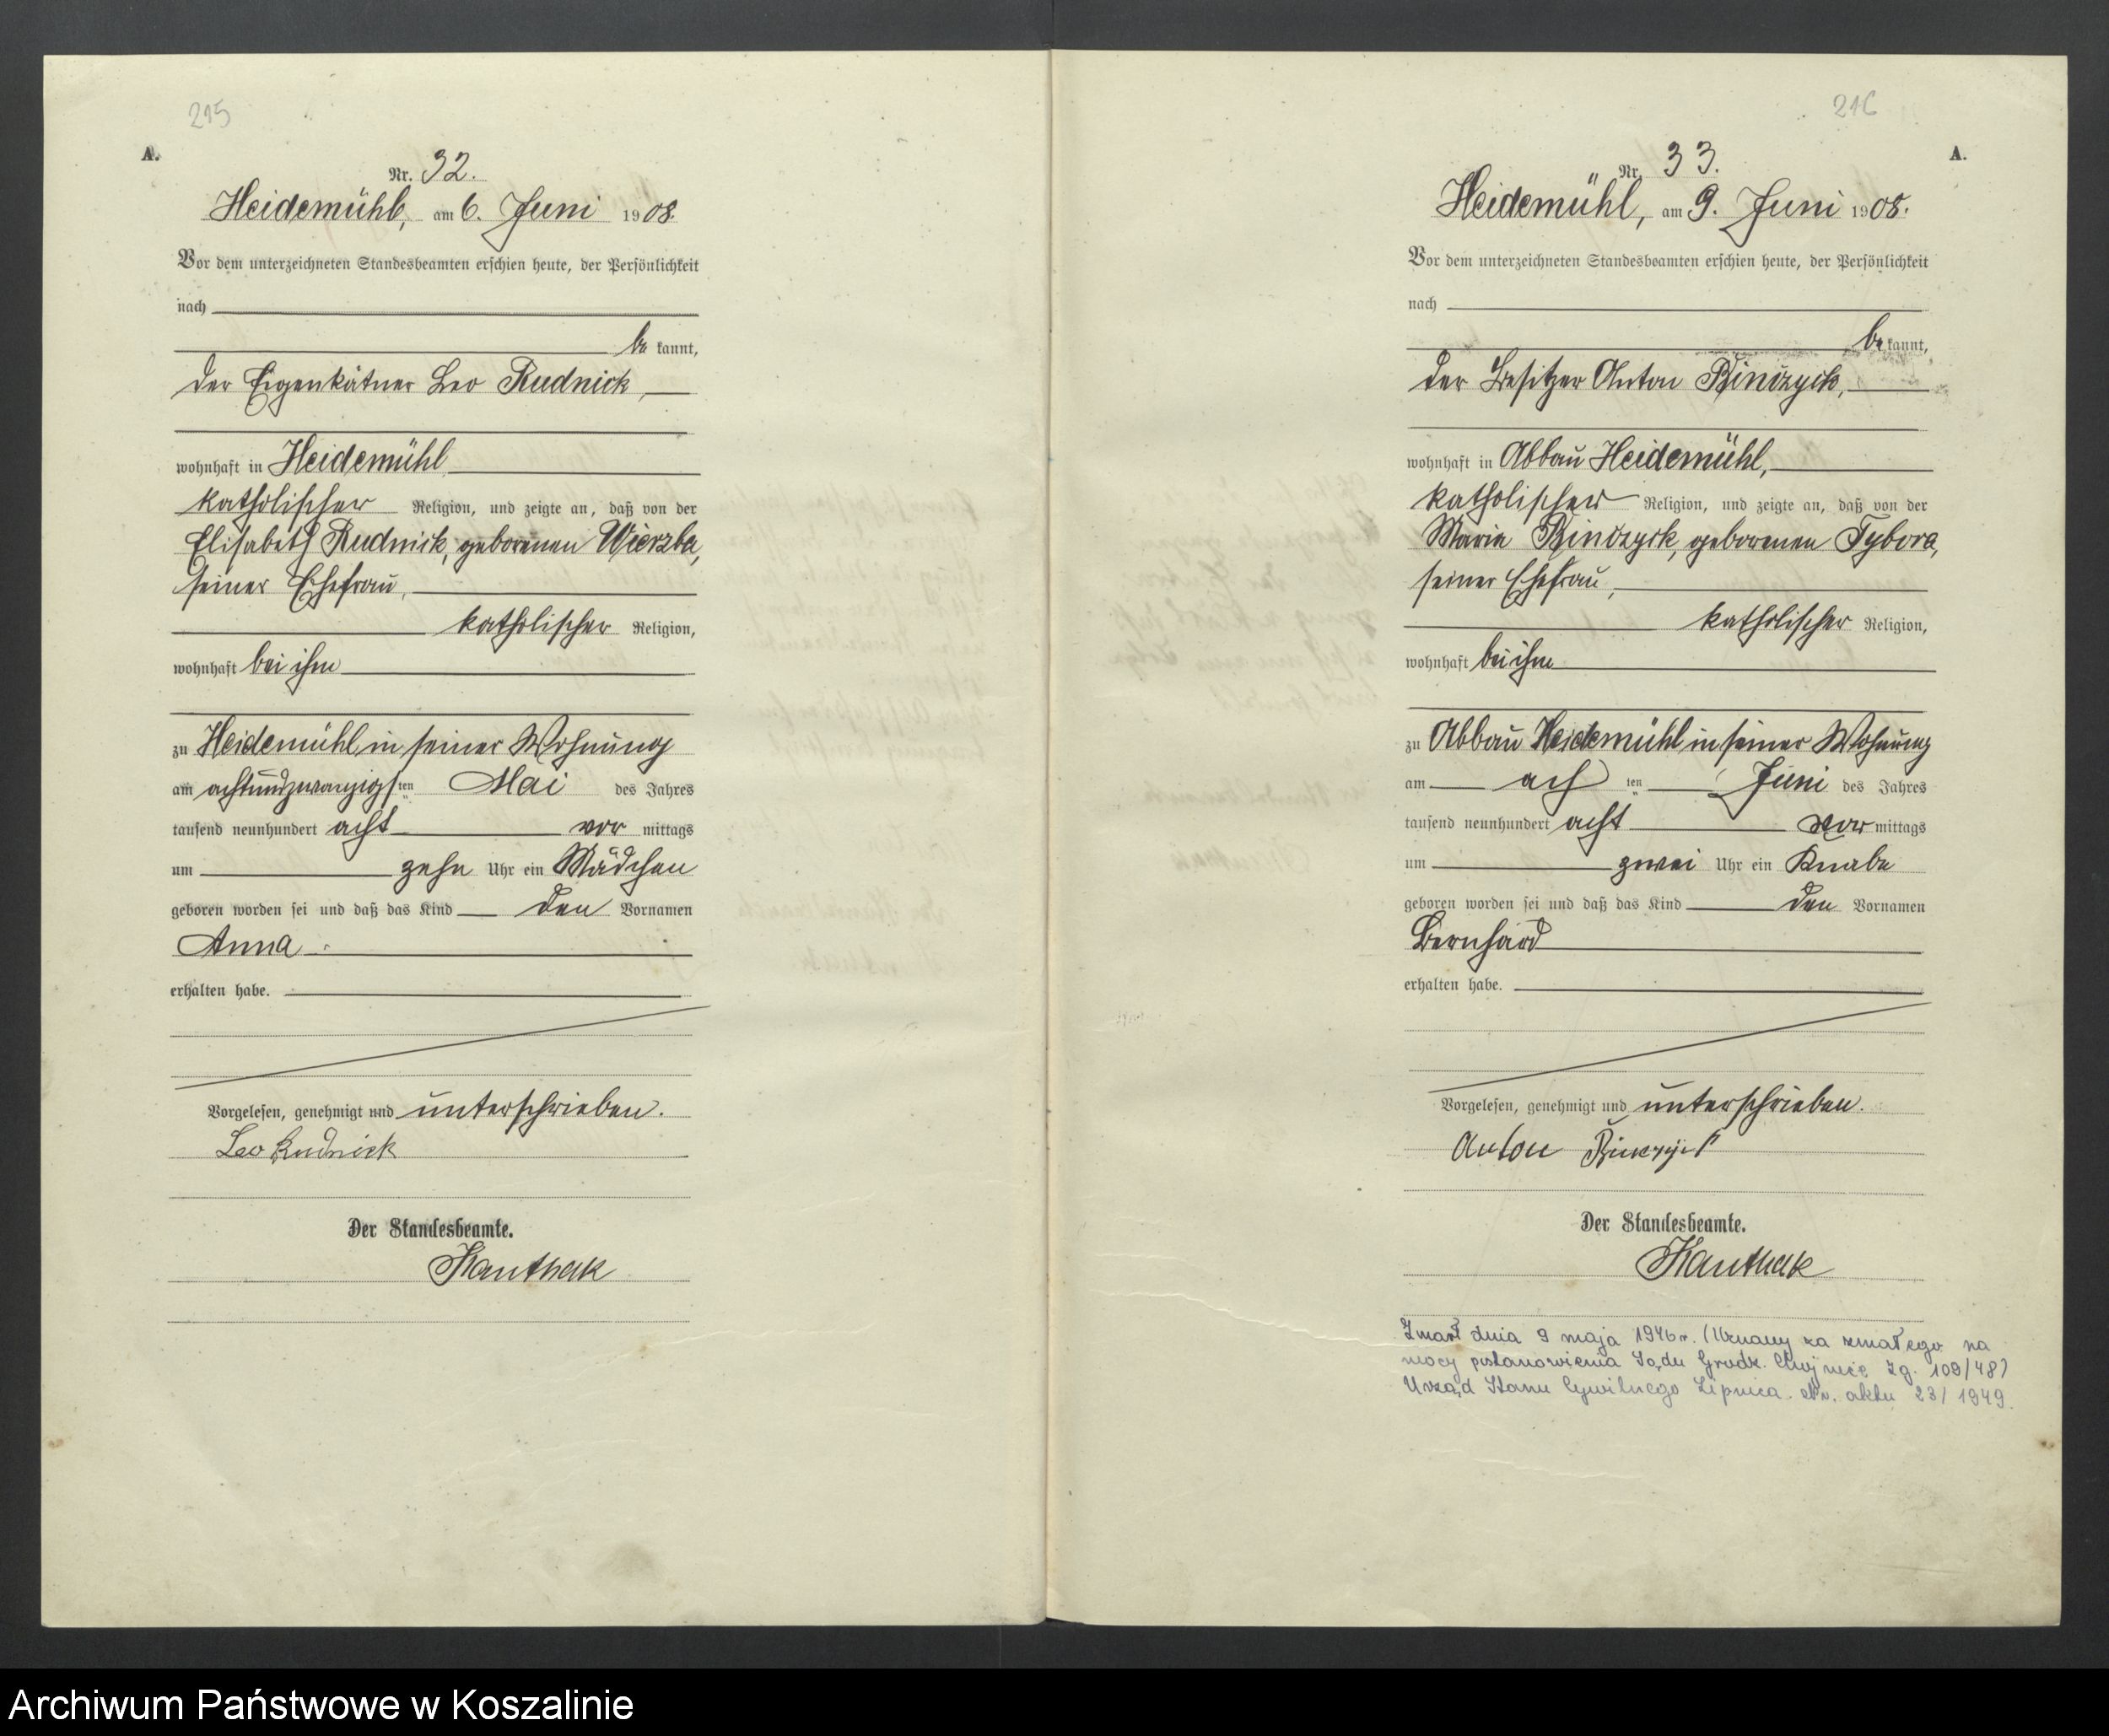 215
A.
Nr. 32.
Heidemühl, am 6. Juni 1908.
Vor dem unterzeichneten Standesbeamten erschien heute, der Persönlichkeit
nach
be kannt,
der Eigenkätner Leo Rudnick,
wohnhaft in Heidemühl
katholischer Religion, und zeigte an, daß von der
Elisabeth Rudnick, geborenen Wierzba,
seiner Ehefrau,
katholischer Religion,
wohnhaft bei ihm
zu Heidemühl in seiner Wohnung
am achtundzwanzigsten Mai des Jahres
tausend neunhundert acht vor mittags
um zehn Uhr ein Mädchen
geboren worden sei und daß das Kind den Vornamen
Anna
erhalten habe.
Vorgelesen, genehmigt und unterschrieben.
Leo Rudnick
Der Standesbeamte.
Kanthak
216
A.
Nr. 33.
Heidemühl, am 9. Juni 1908.
Vor dem unterzeichneten Standesbeamten erschien heute, der Persönlichkeit
nach
be kannt,
der Besitzer Anton Binczyk,
wohnhaft in Abbau Heidemühl,
katholischer Religion, und zeigte an, daß von der
Maria Binczyk, geborenen Tybora,
seiner Ehefrau,
katholischer Religion,
wohnhaft bei ihm
zu Abbau Heidemühl in seiner Wohnung
am achten Juni des Jahres
tausend neunhundert acht vor mittags
um zwei Uhr ein Knabe
geboren worden sei und daß das Kind den Vornamen
Bernhard
erhalten habe.
Vorgelesen, genehmigt und unterschrieben.
Anton
Der Standesbeamte.
Kanthak
Zmarł dnia 9 maja 1946 r. (Uznany za zmarłego na
mocy postanowienia Sądu Grodz. Chojnice Zg. 109/48)
Urząd Stanu Cywilnego Lipnica. Nr. aktu 23/1949.
Archiwum Państwowe w Koszalinie